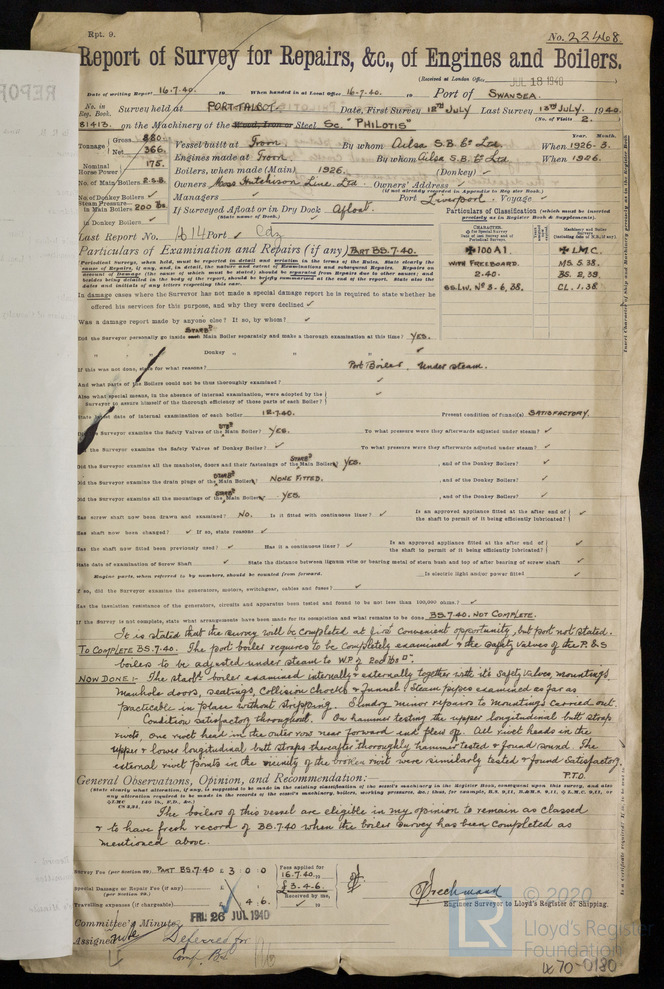 Rpt. 9.
No. 22468.
Report of Survey for Repairs, &c., of Engines and Boilers.
(Received at London Office JUL 18 1940
Date of writing Report 16.7.40. 19 When handed in at Local Office 16.7.40. 19 Port of SWANSEA.
No. in Reg. Book. Survey held at PORT-TALBOT Date, First Survey 12th JULY Last Survey 13th JULY. 1940
(No. of Visits 2.
81413. on the Machinery of the Wood, Iron or Steel Sc. "PHILOTIS"
Tonnage Gross 880 Net 366.
Vessel built at Troon. By whom Ailsa S.B. Co Ltd. When 1926-3.
Year. Month.
Engines made at Troon. By whom Ailsa S.B. Co Ltd When 1926.
Nominal Horse Power 175.
Boilers, when made (Main) 1926. (Donkey) ✓
No. of Main Boilers 2.S.B. Owners Moss Hutchison Line. Ltd. Owners' Address ✓
(If not already recorded in Appendix to Register Book.)
No. of Donkey Boilers ✓ Managers ✓ Port Liverpool. Voyage ✓
Steam Pressure in Main Boilers 200 lbs
in Donkey Boilers ✓
If Surveyed Afloat or in Dry Dock Afloat.
(State name of Dock.)
Particulars of Classification (which must be inserted precisely as in Register Book & Supplements).
Last Report No. Port
Particulars of Examination and Repairs (if any) PART BS.7.40.
✠ 100A1. ✠ LMC.
WITH FREEBOARD. MS 5 38.
2.40. BS. 2,39.
SS.LW. No 3-6,38. CL. 1.38.
In damage cases where the Surveyor has not made a special damage report he is required to state whether he
offered his services for this purpose, and why they were declined ✓
Was a damage report made by anyone else? If so, by whom? ✓
Did the Surveyor personally go inside each STARBD Main Boiler separately and make a thorough examination at this time? YES.
" " Donkey " " " ✓
If this was not done, state for what reasons? Port Boiler, Under steam.
And what parts of the Boilers could not be thoroughly examined? ✓
Also what special means, in the absence of internal examination, were adopted by the Surveyor to assure himself of the thorough efficiency of those parts of each Boiler? ✓
State latest date of internal examination of each boiler 12.7.40. Present condition of funnel(s) SATISFACTORY.
Did the Surveyor examine the Safety Valves of the STBD Main Boiler? YES. To what pressure were they afterwards adjusted under steam? ✓
Did the Surveyor examine the Safety Valves of Donkey Boiler? ✓ To what pressure were they afterwards adjusted under steam? ✓
Did the Surveyor examine all the manholes, doors and their fastenings of the STARBD Main Boilers YES. , and of the Donkey Boilers? ✓
Did the Surveyor examine the drain plugs of the STARBD Main Boilers NONE FITTED. , and of the Donkey Boilers? ✓
Did the Surveyor examine all the mountings of the STARBD Main Boilers YES. , and of the Donkey Boilers? ✓
Has screw shaft now been drawn and examined? NO. Is it fitted with continuous liner? ✓ Is an approved appliance fitted at the after end of the shaft to permit of it being efficiently lubricated? ✓
Has shaft now been changed? ✓ If so, state reasons ✓
Has the shaft now fitted been previously used? ✓ Has it a continuous liner? ✓ Is an approved appliance fitted at after end of the shaft to permit of it being efficiently lubricated? ✓
State date of examination of Screw Shaft ✓ State the distance between lignum vitæ or bearing metal of stern bush and top of after bearing of screw shaft ✓
Engine parts, when referred to by numbers, should be counted from forward. Is electric light and/or power fitted ✓
If so, did the Surveyor examine the generators, motors, switchgear, cables and fuses? ✓
Has the insulation resistance of the generators, circuits and apparatus been tested and found to be not less than 100,000 ohms? ✓
If the Survey is not complete, state what arrangements have been made for its completion and what remains to be done BS.7.40. NOT COMPLETE.
It is stated that the survey will be completed at first convenient opportunity, but port not stated.
TO COMPLETE BS.7.40. The port boiler requires to be completely examined & the safety valves of the P. & S
boilers to be adjusted under steam to WP of 200 lbs □".
NOW DONE:- The starbd boiler examined internally & externally together with its safety valves, mountings,
manhole doors, seatings, collision chocks & funnel. Steam pipes examined as far as
practicable in place without stripping. Sundry minor repairs to mountings carried out.
Condition satisfactory throughout. On hammer testing the upper longitudinal butt strap
rivets, one rivet head in the outer row near forward end flew off. All rivet heads in the
upper & lower longitudinal butt straps thereafter thoroughly hammer tested & found sound. The
external rivet points in the vicinity of the broken rivet were similarly tested & found satisfactory.
P.T.O.
General Observations, Opinion, and Recommendation:—
The boilers of this vessel are eligible in my opinion to remain as classed
& to have fresh record of BS.7.40 when the boiler survey has been completed as
mentioned above.
Survey Fee (per Section 29). PART BS.7.40 £ 3 0 0
Fees applied for 16.7.40. 19
Special Damage or Repair Fee (if any) (per Section 29.) £
£3-4-6.
Received by me,
Travelling expenses (if chargeable) 4 6.
Engineer Surveyor to Lloyd's Register of Shipping.
Committee's Minute FRI. 26 JUL 1940
Assigned Deferred for
Comp. BS
© 2020
LR
Lloyd's Register
Foundation
IX 70-0180